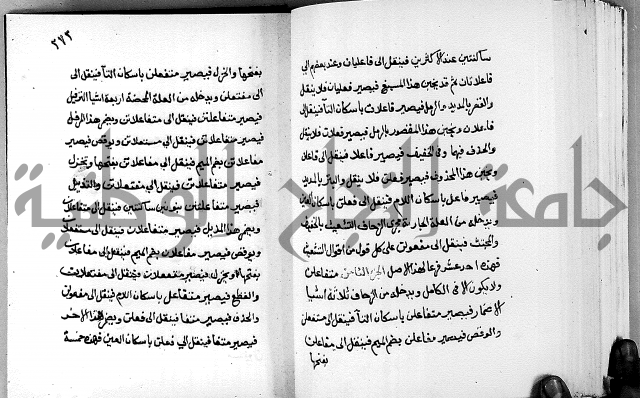 ساكنتين عند الاكثرين فينقل الى فاعليان وعند بعضهم الى
فاعلاتان ثم قد يخبن هذا المسبغ فيصير فعليان فلا ينقل
والقصر بالمديد والرمل فيصير فاعلات باسكان التا فينقل الى
فاعلان ويخبن هذا المقصور بالرمل فيصير فعلات فلا ينقل
والحذف فيها وفي الخفيف فيصير فاعلا فينقل الى فاعلن
ويخبن هذا المحذوف فيصير فعلن فلا ينقل والبتر بالمديد
فيصير فاعل باسكان اللام فينقل الى فعلن باسكان العين
ويدخله من العلة الجارية مجرى الزحاف التشعيث بالخفيف
والمجتث فينقل الى مفعولن على كل قول من اقوال التشعيث
فهذه احد عشر فرعا لهذا الاصل الجزء الثامن متفاعلن
ولا يكون الا في الكامل ويدخله من الزحاف ثلاثة اشيا
الاضمار فيصير متفاعلن باسكان التا فينقل الى مستفعلن
والوقص فيصير مفاعلن بضم الميم فينقل الى مفاعلن
بفتحها
٢٧٣
بفتحها والخزل فيصير متفعلن باسكان التا فينقل الى
الى مفتعلن ويدخله من العلة المحضة اربعة اشيا الترفيل
فيصير متفاعلتن فينقل الى متفاعلاتن ويضمر هذا المرفل
فيصير متفاعلاتن فينقل الى مستفعلاتن ويوقص فيصير
مفاعلاتن بضم الميم فينقل الى مفاعلاتن بفتحها ويخزل
فيصير متفعلاتن فينقل الى مفتعلاتن والتذييل
فيصير متفاعلنن بنونين ساكنتين فينقل الى متفاعلان
ويضمر هذا المذيل فيصير متفاعلان فينقل الى مستفعلان
ويوقص فيصير مفاعلان بضم الميم فينقل الى مفاعلان
بفتحها ويخزل فيصير متفعلان فينقل الى مفتعلان
والقطع فيصير متفاعل باسكان اللام فينقل الى مفعولن
والحذذ فيصير متفا فينقل الى فعلن ويضمر هذا الاحذ
فيصير متفا فينقل الى فعلن باسكان العين فهذه خمسة
جامعة النجاح الوطنية